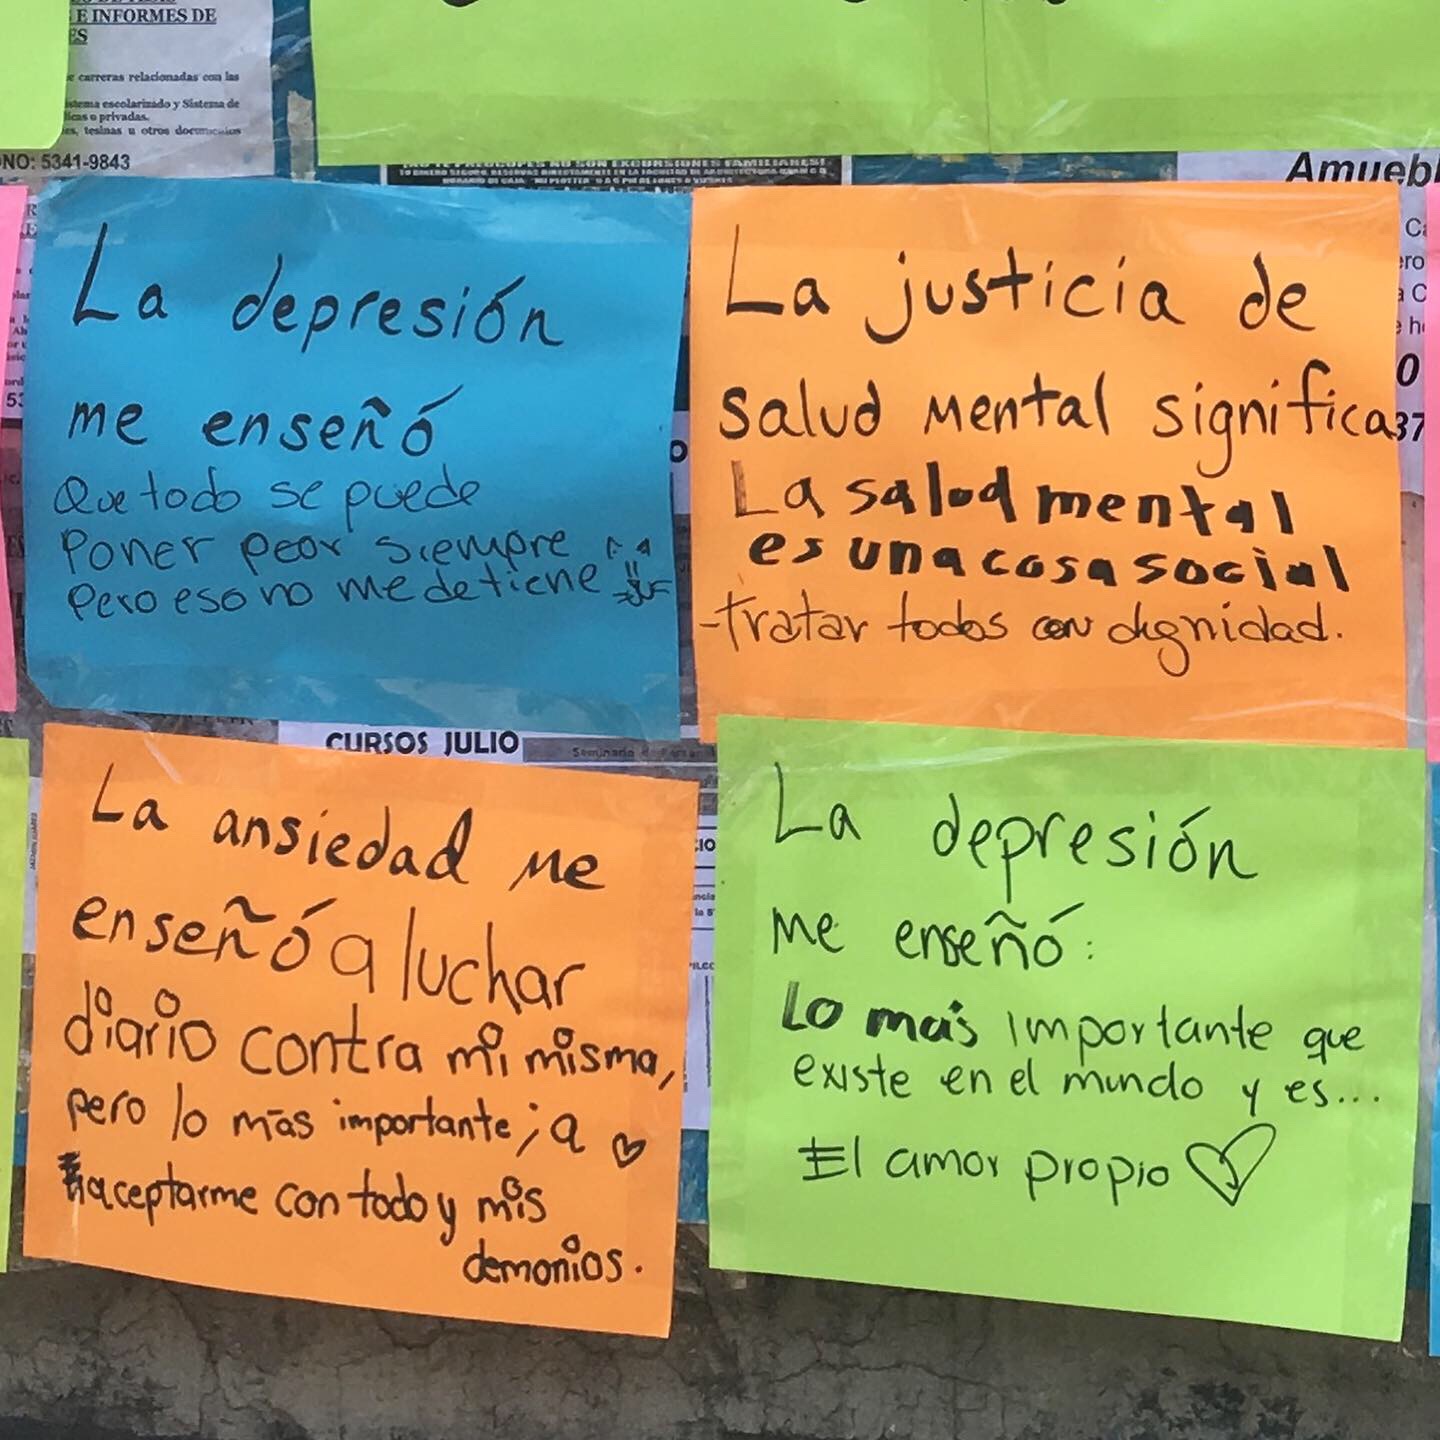 E INFORMES DE
carreras relacionadas con las
sistema escolarizado y Sistema de
o privadas.
tesinas u otros documentos
NO: 5341-9843
Amuebl
La depresión
me enseñó
Que todo se puede
Poner peor siempre
Pero eso no me detiene
La justicia de
salud mental significa
La salud mental
es una cosa social
-tratar todos con dignidad.
37
CURSOS JULIO
La ansiedad me
enseñó a luchar
diario contra mi misma,
pero lo más importante; a
aceptarme con todo y mis
demonios.
La depresión
me enseñó:
Lo más importante que
existe en el mundo y es...
El amor propio